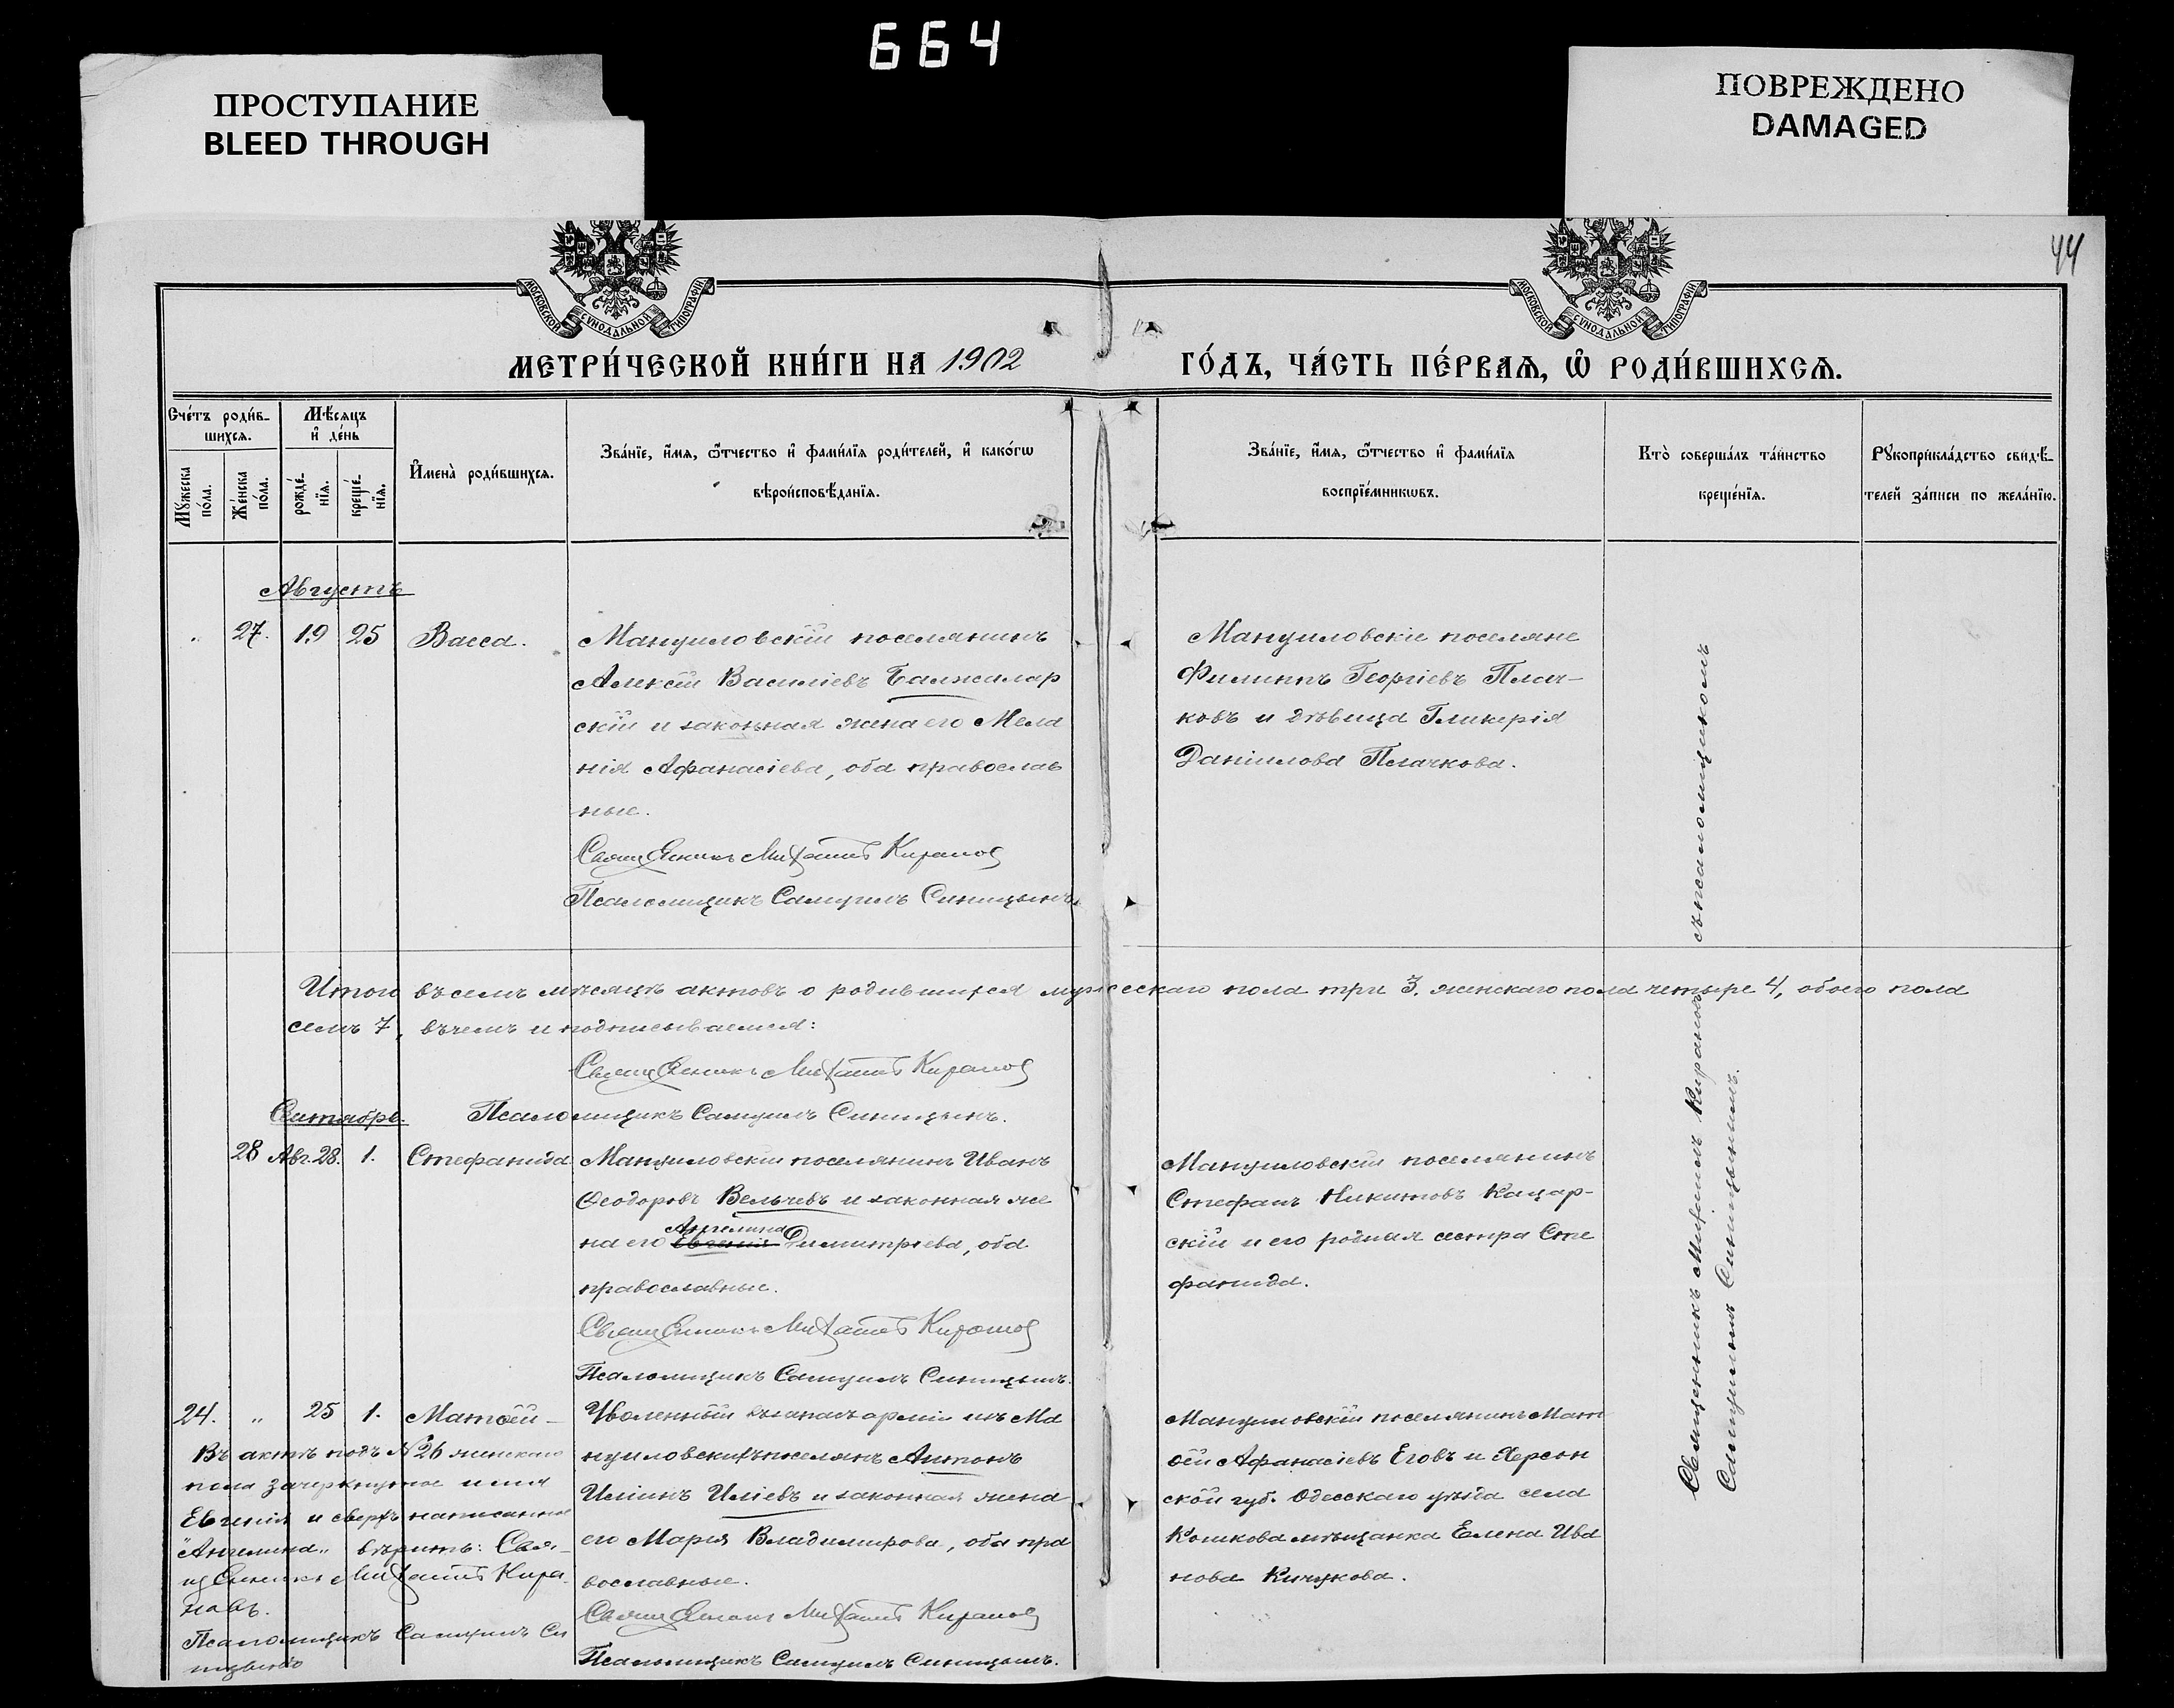 664
ПРОСТУПАНИЕ
BLEED THROUGH
ПОВРЕЖДЕНО
DAMAGED
44
МОСКОВСКОЙ СѴНОДАЛЬНОЙ ТИПОГРАФІИ
МОСКОВСКОЙ СѴНОДАЛЬНОЙ ТИПОГРАФІИ
МЕТРИ́ЧЕСКОЙ КНИ́ГИ НА 1902
ГО́ДЪ, ЧА́СТЬ ПЕ́РВАѦ, Ѽ РОДИ́ВШИХСѦ.
Сче́тъ роди́в-
шихсѧ.
Мѣ́сѧцъ
и҆ де́нь
Мꙋ́жеска по́ла.
Же́нска по́ла.
рожде́-
нїѧ.
креще́-
нїѧ.
И҆мена̀ роди́вшихсѧ.
Зва́нїе, и҆́мѧ, ѻ҆́тчество и҆ фами́лїѧ роди́телей, и҆ како́гѡ
вѣроисповѣ́данїѧ.
Зва́нїе, и҆́мѧ, ѻ҆́тчество и҆ фами́лїѧ
воспрїе́мникѡвъ.
Кто̀ соверша́лъ та́инство
креще́нїѧ.
Рꙋкоприкла́дство свидѣ́-
телей за́писи по жела́нїю.
Августъ
27. 19 25 Васса.
Мануиловскій поселянинъ
Алексѣй Василіевъ Балжалар
скій и законная жена его Мела
нія Афанасіева, оба православ
ные.
Священникъ Михаилъ Киранов
Псаломщикъ Самуилъ Синицынъ.
Мануиловскіе поселяне
Филиппъ Георгіевъ Плач-
ковъ и дѣвица Гликерія
Даніилова Плачкова.
Итого въ семъ мѣсяцѣ актовъ о родившихся мужескаго пола три 3. женскаго пола четыре 4, обоего пола
семь 7, въ чемъ и подписываемся:
Священникъ Михаилъ Киранов
Псаломщикъ Самуилъ Синицынъ.
Сентябрь.
28 Авг. 28. 1. Стефанида
Мануиловскій поселянинъ Иванъ
Ѳеодоровъ Вельчевъ и законная же
Ангелина
на его Евгенія Димитріева, оба
православные.
Священникъ Михаилъ Киранов
Псаломщикъ Самуилъ Синицынъ.
Мануиловскій поселянинъ
Стефанъ Никитовъ Кацар-
скій и его родная сестра Сте
фанида.
24. " 25 1. Матѳѣй
Уволенный въ запасъ арміи изъ Ма
нуиловскихъ поселянъ Антонъ
Иліинъ Иліевъ и законная жена
его Марія Владимирова, оба пра
вославные.
Священникъ Михаилъ Киранов
Псаломщикъ Самуилъ Синицынъ.
Мануиловскій поселянинъ Мат
ѳѣй Афанасіевъ Еговъ и Херсон
ской губ. Одесскаго уѣзда села
Кошкова мѣщанка Елена Ива
нова Кичукова.
Въ актѣ подъ №26 женскаго
пола зачеркнутое имя
Евгенія и сверхъ написанное
"Ангелина" вѣрить: Свя-
щенникъ Михаилъ Кира-
новъ.
Псаломщикъ Самуилъ Си
ницынъ
Священникъ Михаилъ Кирановъ съ псаломщикомъ
Самуиломъ Синицынымъ.